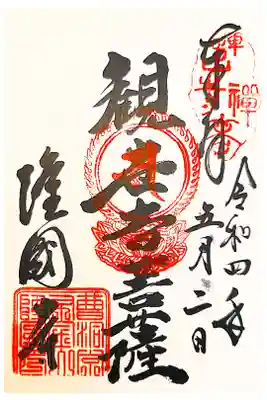 奉拝
令和四年
五月二日
観世音菩薩
隆國寺